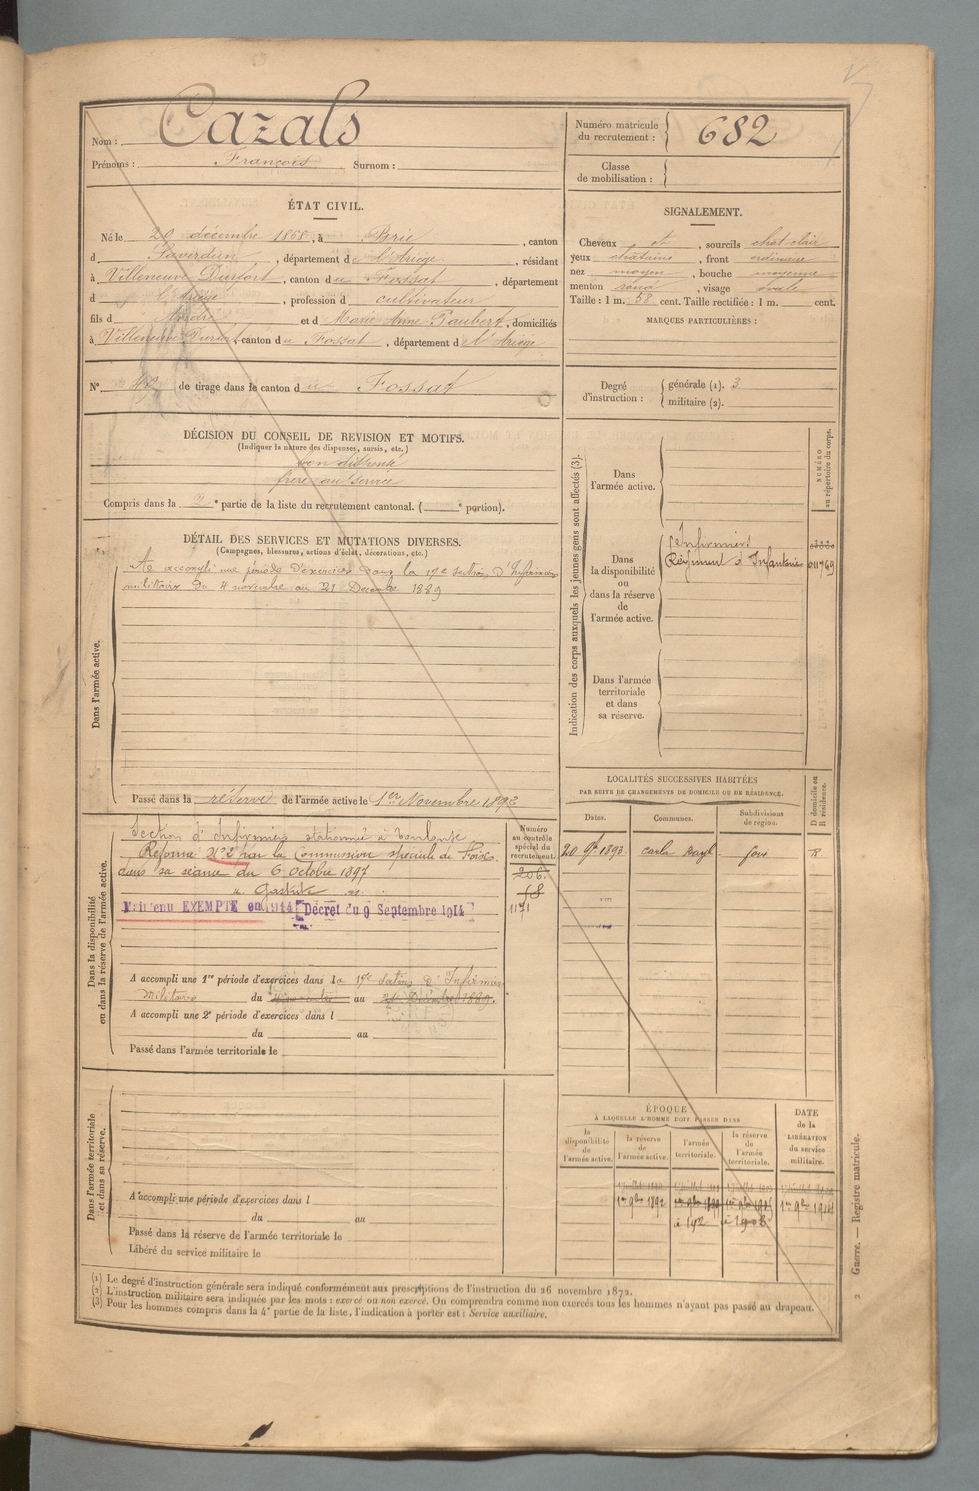 Nom : Cazals
Prénoms : François Surnom :
Numéro matricule du recrutement : 682
Classe de mobilisation :
ÉTAT CIVIL.
Né le 20 décembre 1868, à Brie, canton
d Saverdun, département de l'Ariège, résidant
à Villeneuve Durfort, canton du Fossat, département
d l'Ariège, profession d cultivateur
fils d André et d Marie Anne Paubert, domiciliés
à Villeneuve Durfort canton du Fossat, département d l'Ariège
N° de tirage dans le canton du Fossat
SIGNALEMENT.
Cheveux et, sourcils chat clair
yeux chatains, front ordinaire
nez moyen, bouche moyenne
menton rond, visage ovale
Taille : 1 m. 58 cent. Taille rectifiée : 1 m. cent.
MARQUES PARTICULIÈRES :
Degré d'instruction : générale (1). 3
militaire (2).
DÉCISION DU CONSEIL DE REVISION ET MOTIFS.
(Indiquer la nature des dispenses, sursis, etc.)
bon dispensé
frère au service
Compris dans la 2e partie de la liste du recrutement cantonal. (e portion).
DÉTAIL DES SERVICES ET MUTATIONS DIVERSES.
(Campagnes, blessures, actions d'éclat, décorations, etc.)
Dans l'armée active.
A accompli une période d'exercices dans la 17e section d'Infirmiers
militaires du 4 novembre au 21 Décembre 1889
Passé dans la réserve de l'armée active le 1er Novembre 1892
Indication des corps auxquels les jeunes gens sont affectés (3).
NUMÉRO au répertoire du corps.
Dans l'armée active.
Dans la disponibilité ou dans la réserve de l'armée active.
Infirmiers
Régiment d'Infanterie 011769
Dans l'armée territoriale et dans sa réserve.
Dans la disponibilité ou dans la réserve de l'armée active.
Section d'Infirmiers stationnée à Toulouse
Réformé N°2 par la Commission spéciale de Foix
dans sa séance du 6 Octobre 1897
Maintenu EXEMPTÉ en 1914 Décret du 9 Septembre 1914
Numéro au contrôle spécial du recrutement.
206
68
1171
A accompli une 1re période d'exercices dans la 17e Section d'Infirmiers
Militaires du 4 novembre au 21 Décembre 1889.
A accompli une 2e période d'exercices dans l
du au
Passé dans l'armée territoriale le
LOCALITÉS SUCCESSIVES HABITÉES
PAR SUITE DE CHANGEMENTS DE DOMICILE OU DE RÉSIDENCE.
Dates. Communes. Subdivisions de région. D domicile ou R résidence.
20 9bre 1893 Carla Bayle Foix R
Dans l'armée territoriale et dans sa réserve.
A accompli une période d'exercices dans l
du au
Passé dans la réserve de l'armée territoriale le
Libéré du service militaire le
ÉPOQUE
À LAQUELLE L'HOMME DOIT PASSER DANS
la disponibilité de l'armée active. la réserve de l'armée active. l'armée territoriale. la réserve de l'armée territoriale.
DATE de la LIBÉRATION du service militaire.
1er 9bre 1892
1er 9bre 1914
(1) Le degré d'instruction générale sera indiqué conformément aux prescriptions de l'instruction du 26 novembre 1872.
(2) L'instruction militaire sera indiquée par les mots : exercé ou non exercé. On comprendra comme non exercés tous les hommes n'ayant pas passé au drapeau.
(3) Pour les hommes compris dans la 4e partie de la liste, l'indication à porter est : Service auxiliaire.
2 Guerre. — Registre matricule.